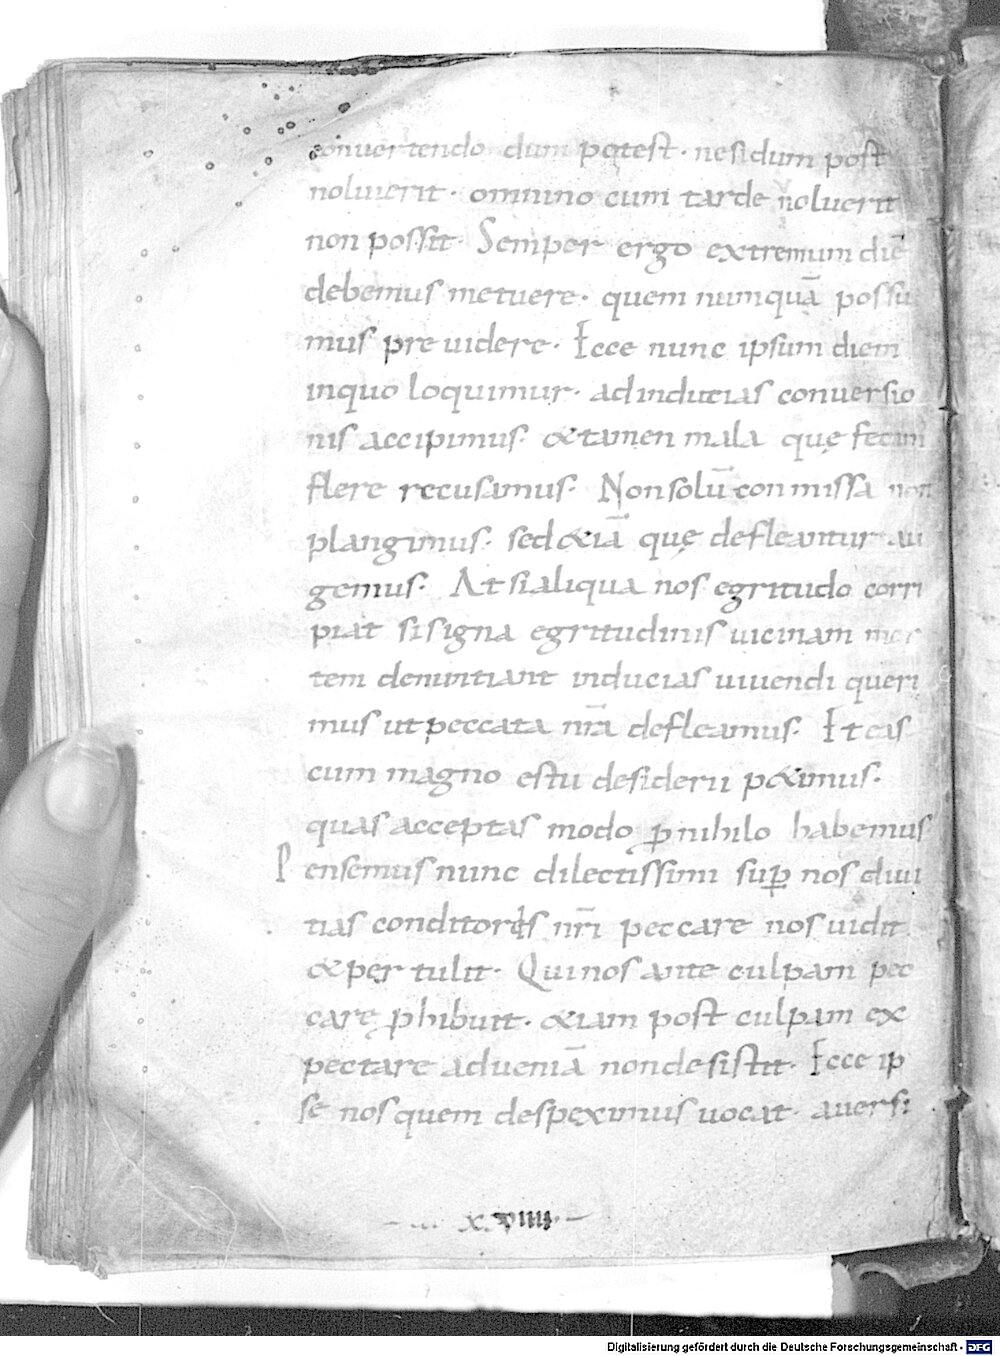 conuertendo dum potest · ne si dum post
noluerit · omnino cum tarde uoluerit
non possit · Semper ergo extremum diē
debemus metuere · quem numquā possu
mus pre uidere · Ecce nunc ipsum diem
inquo loquimur · ad inducias conuersio
nis accipimus · & tamen mala quę fecim
flere recusamus · Non solū conmissa non
plangimus · sed &iā quę defleantur au
gemus · At si aliqua nos egritudo corri
piat si signa egritudinis uicinam mor
tem denuntiant inducias uiuendi queri
mus ut peccata nr̄a defleamus · Et eas
cum magno estu desiderii p&imus ·
quas acceptas modo ꝓ nihilo habemus
Pensemus nunc dilectissimi suꝑ nos diui
tias conditoris nr̄i peccare nos uidit
& per tulit · Qui nos ante culpam pec
care ꝓhibuit · &iam post culpam ex
pectare ad ueniā non desistit · Ecce ip
se nos quem despeximus uocat · auersi
XVIIII
Digitalisierung gefördert durch die Deutsche Forschungsgemeinschaft - DFG